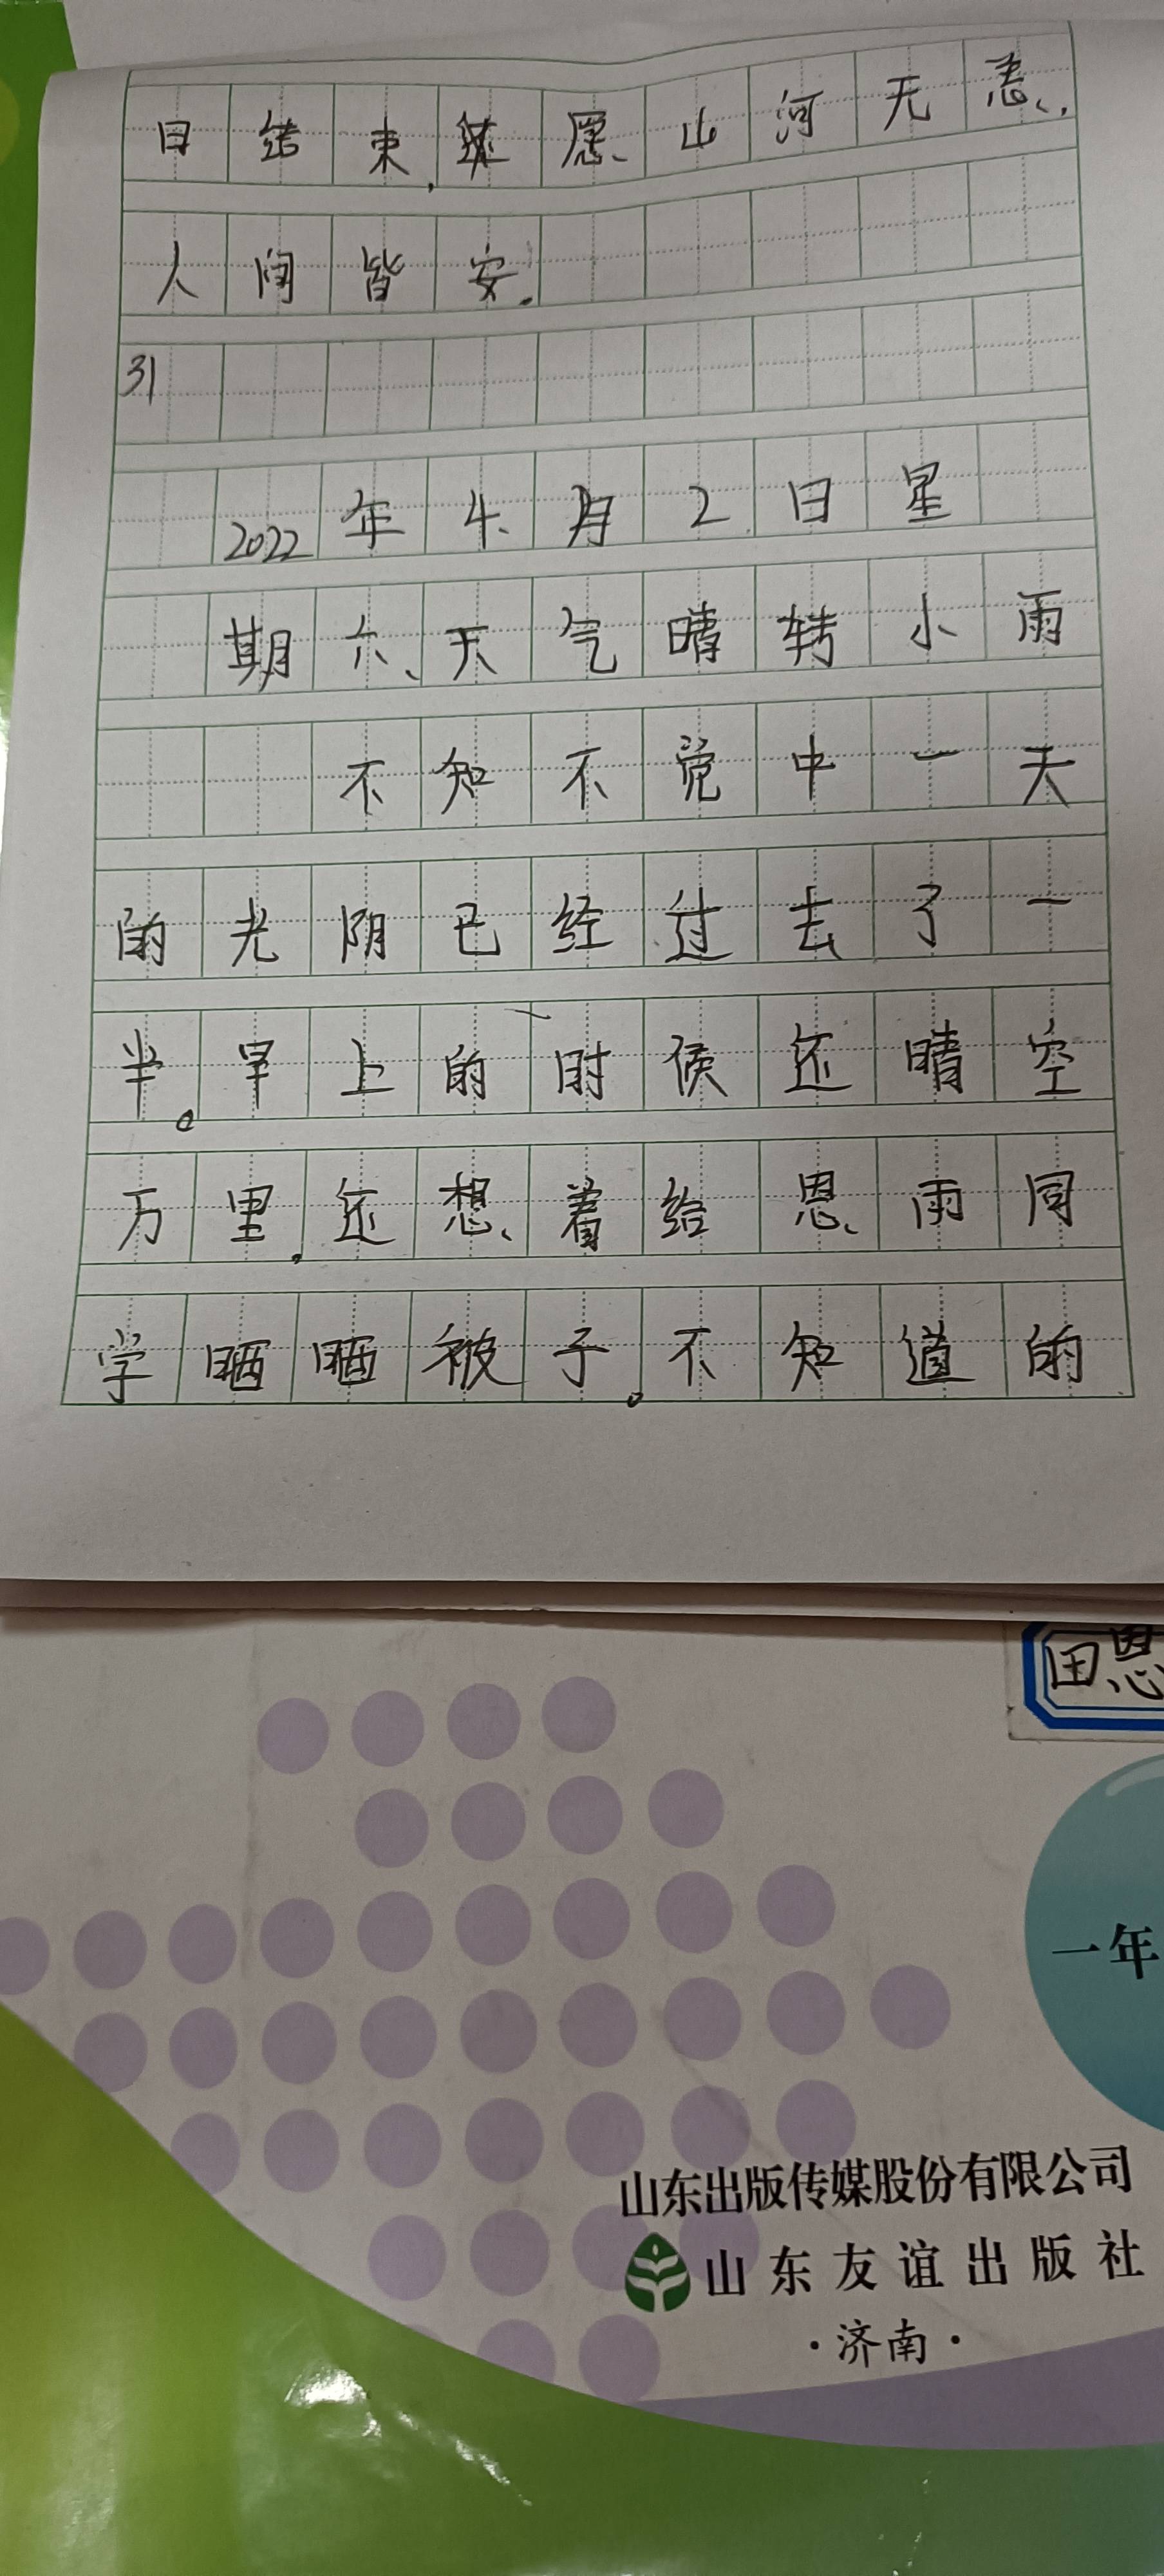 日结束,愿山河无恙,
人间皆安.
31
2022年4月2日星
期六、天气晴转小雨
不知不觉中一天
的光阴已经过去了一
半。早上的时候还晴空
万里,还想着给思雨同
学晒晒被子。不知道的
田思
一年
山东出版传媒股份有限公司
山东友谊出版社
·济南·